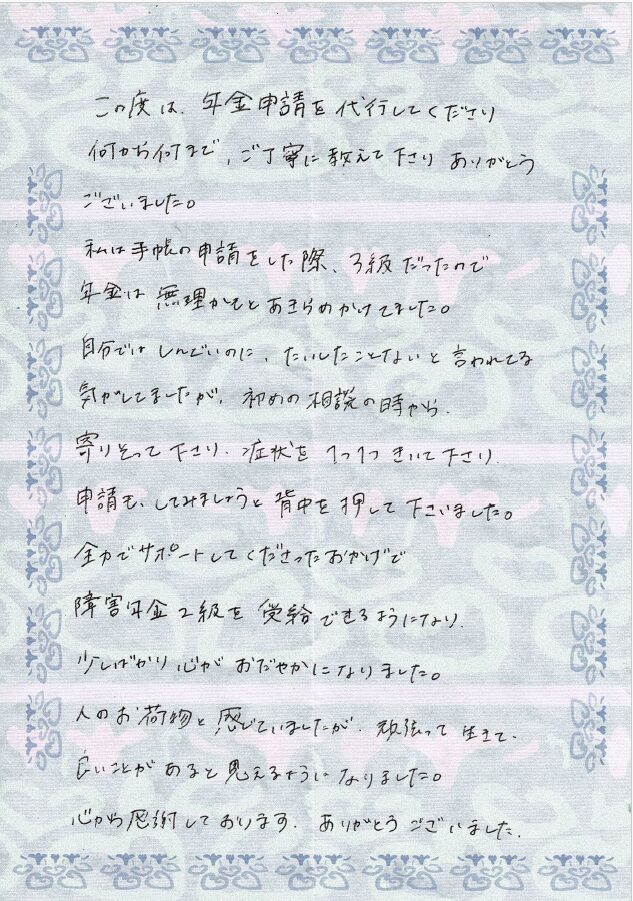 この度は、年金申請を代行してくださり
何から何まで、ご丁寧に教えて下さり ありがとう
ございました。
私は手帳の申請をした際、3級だったので
年金は無理かもとあきらめかけてました。
自分ではしんどいのに、たいしたことないと言われてる
気がしてましたが、初めの相談の時から、
寄りそって下さり、症状を1つ1つきいて下さり、
申請も、してみましょうと背中を押して下さいました。
全力でサポートしてくださったおかげで
障害年金2級を受給できるようになり、
少しばかり心がおだやかになりました。
人のお荷物と感じていましたが、頑張って生きて、
良いことがあると思えるようになりました。
心から感謝しております。ありがとうございました。